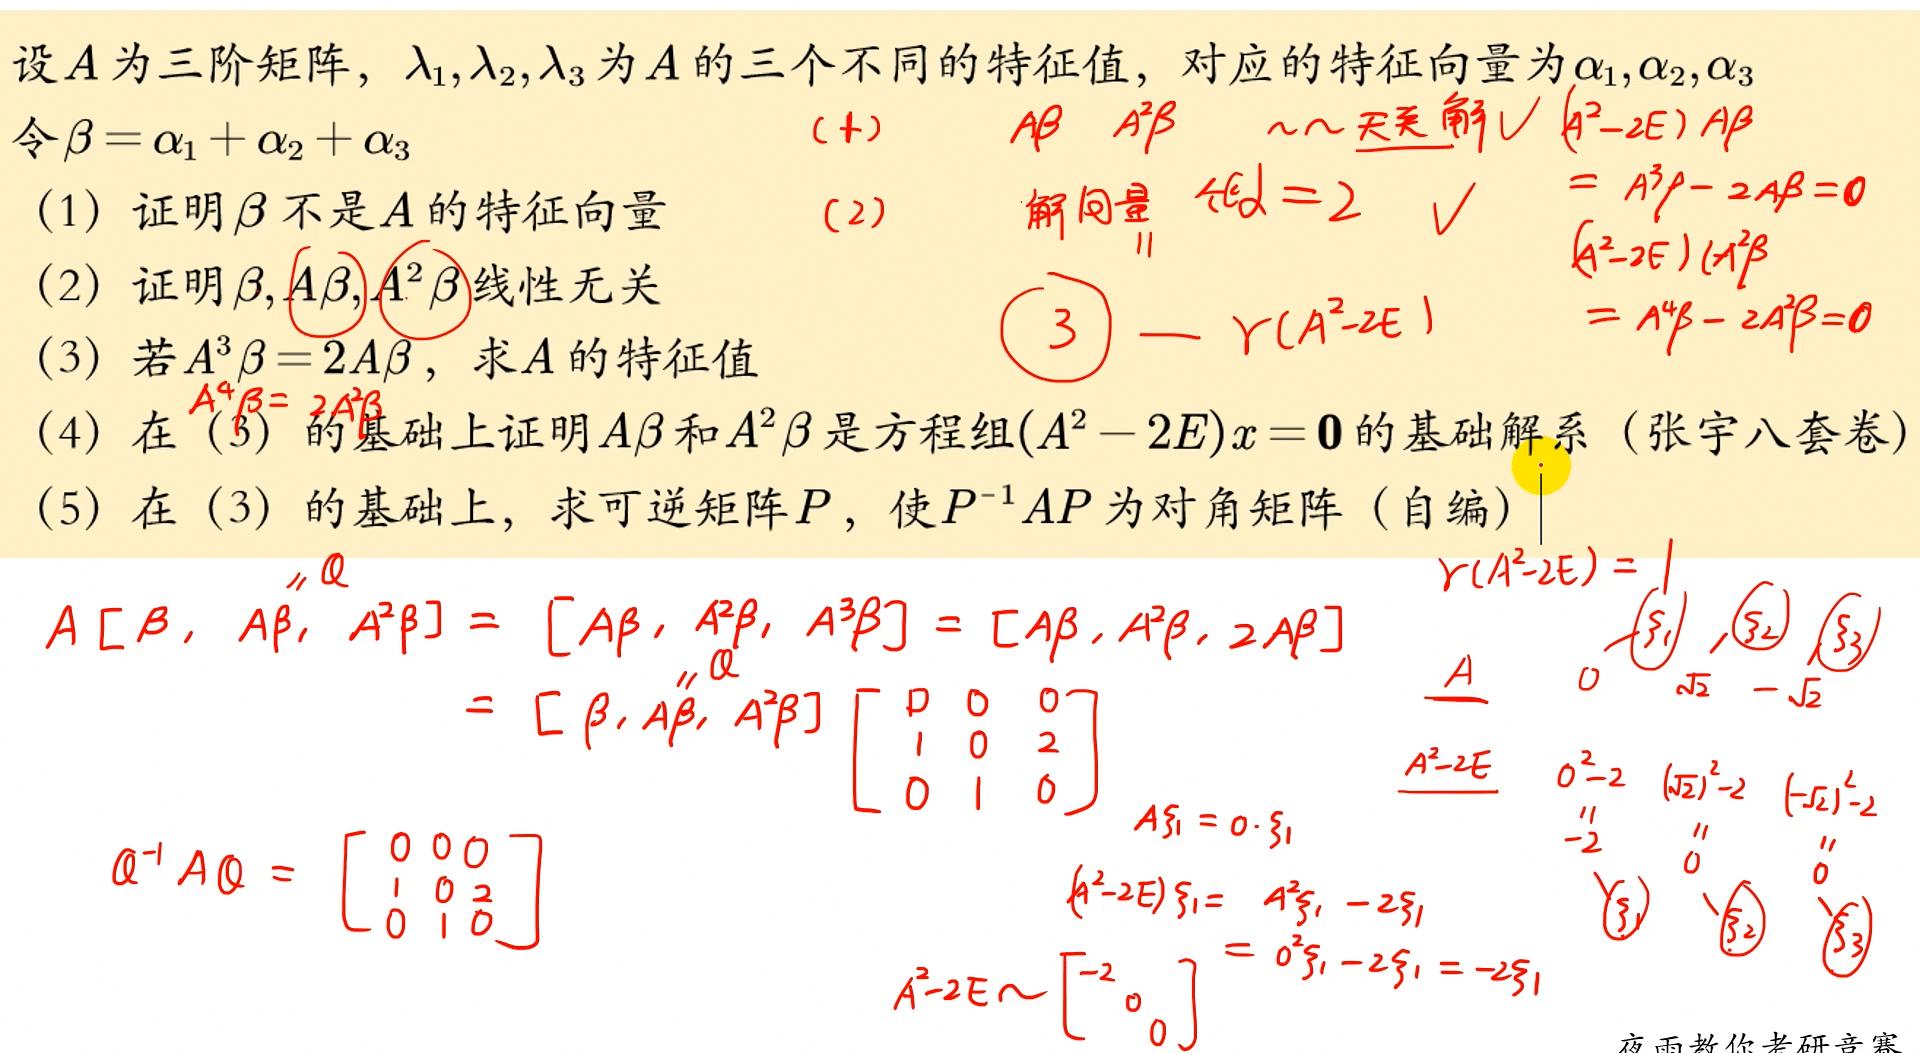 设A为三阶矩阵，λ₁,λ₂,λ₃为A的三个不同的特征值，对应的特征向量为α₁,α₂,α₃
令β=α₁+α₂+α₃
(1) 证明β不是A的特征向量
(2) 证明β,Aβ,A²β线性无关
(3) 若A³β=2Aβ，求A的特征值
(4) 在（3）的基础上证明Aβ和A²β是方程组(A²−2E)x=0的基础解系（张宇八套卷）
(5) 在（3）的基础上，求可逆矩阵P，使P⁻¹AP为对角矩阵（自编）
(1) Aβ A²β ~~无关解✓
(2) 解向量 =2 ✓
=
3 — r(A²-2E)
(A²-2E)Aβ
= A³β-2Aβ=0
(A²-2E)(A²β
= A⁴β-2A²β=0
A⁴β= 2A²β
r(A²-2E)=1
=Q
A[β, Aβ, A²β] = [Aβ, A²β, A³β] = [Aβ, A²β, 2Aβ]
=Q
= [β, Aβ, A²β] [0 0 0
1 0 2
0 1 0]
ξ₁, ξ₂, ξ₃
A 0 √2 -√2
A²-2E 0²-2 (√2)²-2 (-√2)²-2
= = =
-2 0 0
ξ₁ ξ₂ ξ₃
Q⁻¹AQ = [0 0 0
1 0 2
0 1 0]
Aξ₁ = 0·ξ₁
(A²-2E)ξ₁= A²ξ₁ -2ξ₁
= 0²ξ₁-2ξ₁ = -2ξ₁
A²-2E ~ [-2
0
0]
夜雨教你考研竞赛